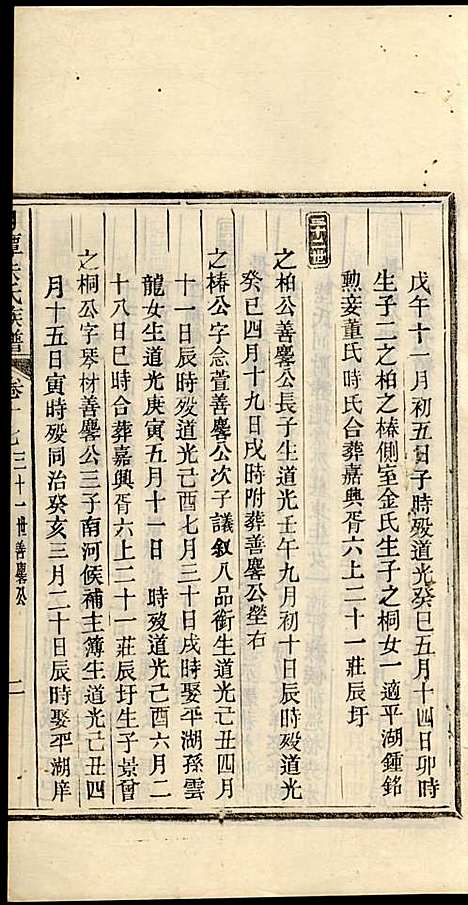 戊午十一月初五日子時殁道光癸巳五月十四日卯時
生子二之柏之椿側室金氏生子之桐女一適平湖鍾銘
勲妾董氏時氏合葬嘉興胥六上二十一莊辰圩
三十二世
之柏公善麐公長子生道光壬午九月初十日辰時殁道光
癸巳四月十九日戌時附葬善麐公塋右
之椿公字念萱善麐公次子議敘八品銜生道光己丑四月
十一日辰時殁道光己酉七月三十日戌時娶平湖孫雲
龍女生道光庚寅五月十一日 時殁道光己酉六月二
十八日巳時合葬嘉興胥六上二十一莊辰圩生子景曾
之桐公字琴材善麐公三子南河候補主簿生道光己丑四
月十五日寅時殁同治癸亥三月二十日辰時娶平湖庠
氏族譜 卷十七 三十一世善麐公 二